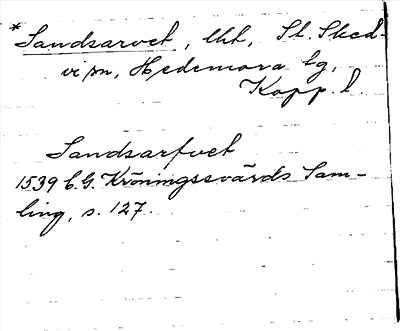 *Sandsarvet, lht, St. Sked-
vi sn, Hedemora tg,
Kopp. l.
Sandsarfvet
1539 C.G. Kröningssvärds Sam-
ling, s. 127.